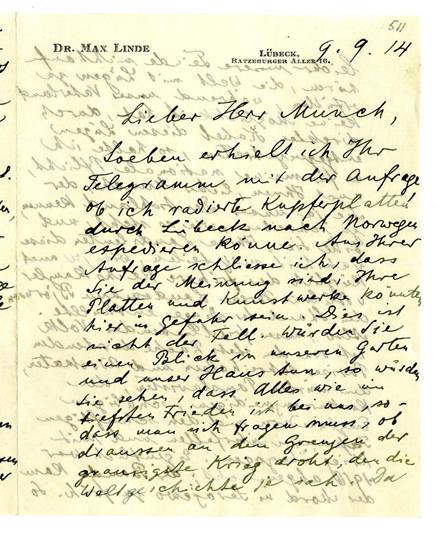 511
DR. MAX LINDE
LÜBECK,
RATZEBURGER ALLEE 16.
9. 9. 14
Lieber Herr Munch,
Soeben erhielt ich Ihr
Telegramm mit der Anfrage
ob ich radierte Kupferplatten
durch Lübeck nach Norwegen
expedieren könne. Aus Ihrer
Anfrage schliesse ich, dass
Sie der Meinung sind, Ihre
Platten und Kunstwerke könnten
hier in Gefahr sein. Dies ist
nicht der Fall. Würden Sie
einen Blick in unseren Garten
und unser Haus tun, so würden
Sie sehen, dass Alles wie im
tiefsten Frieden ist bei uns, so-
dass man sich fragen muss, ob
draussen an den Grenzen der
grausigste Krieg droht, den die
Weltgeschichte je sah. Da